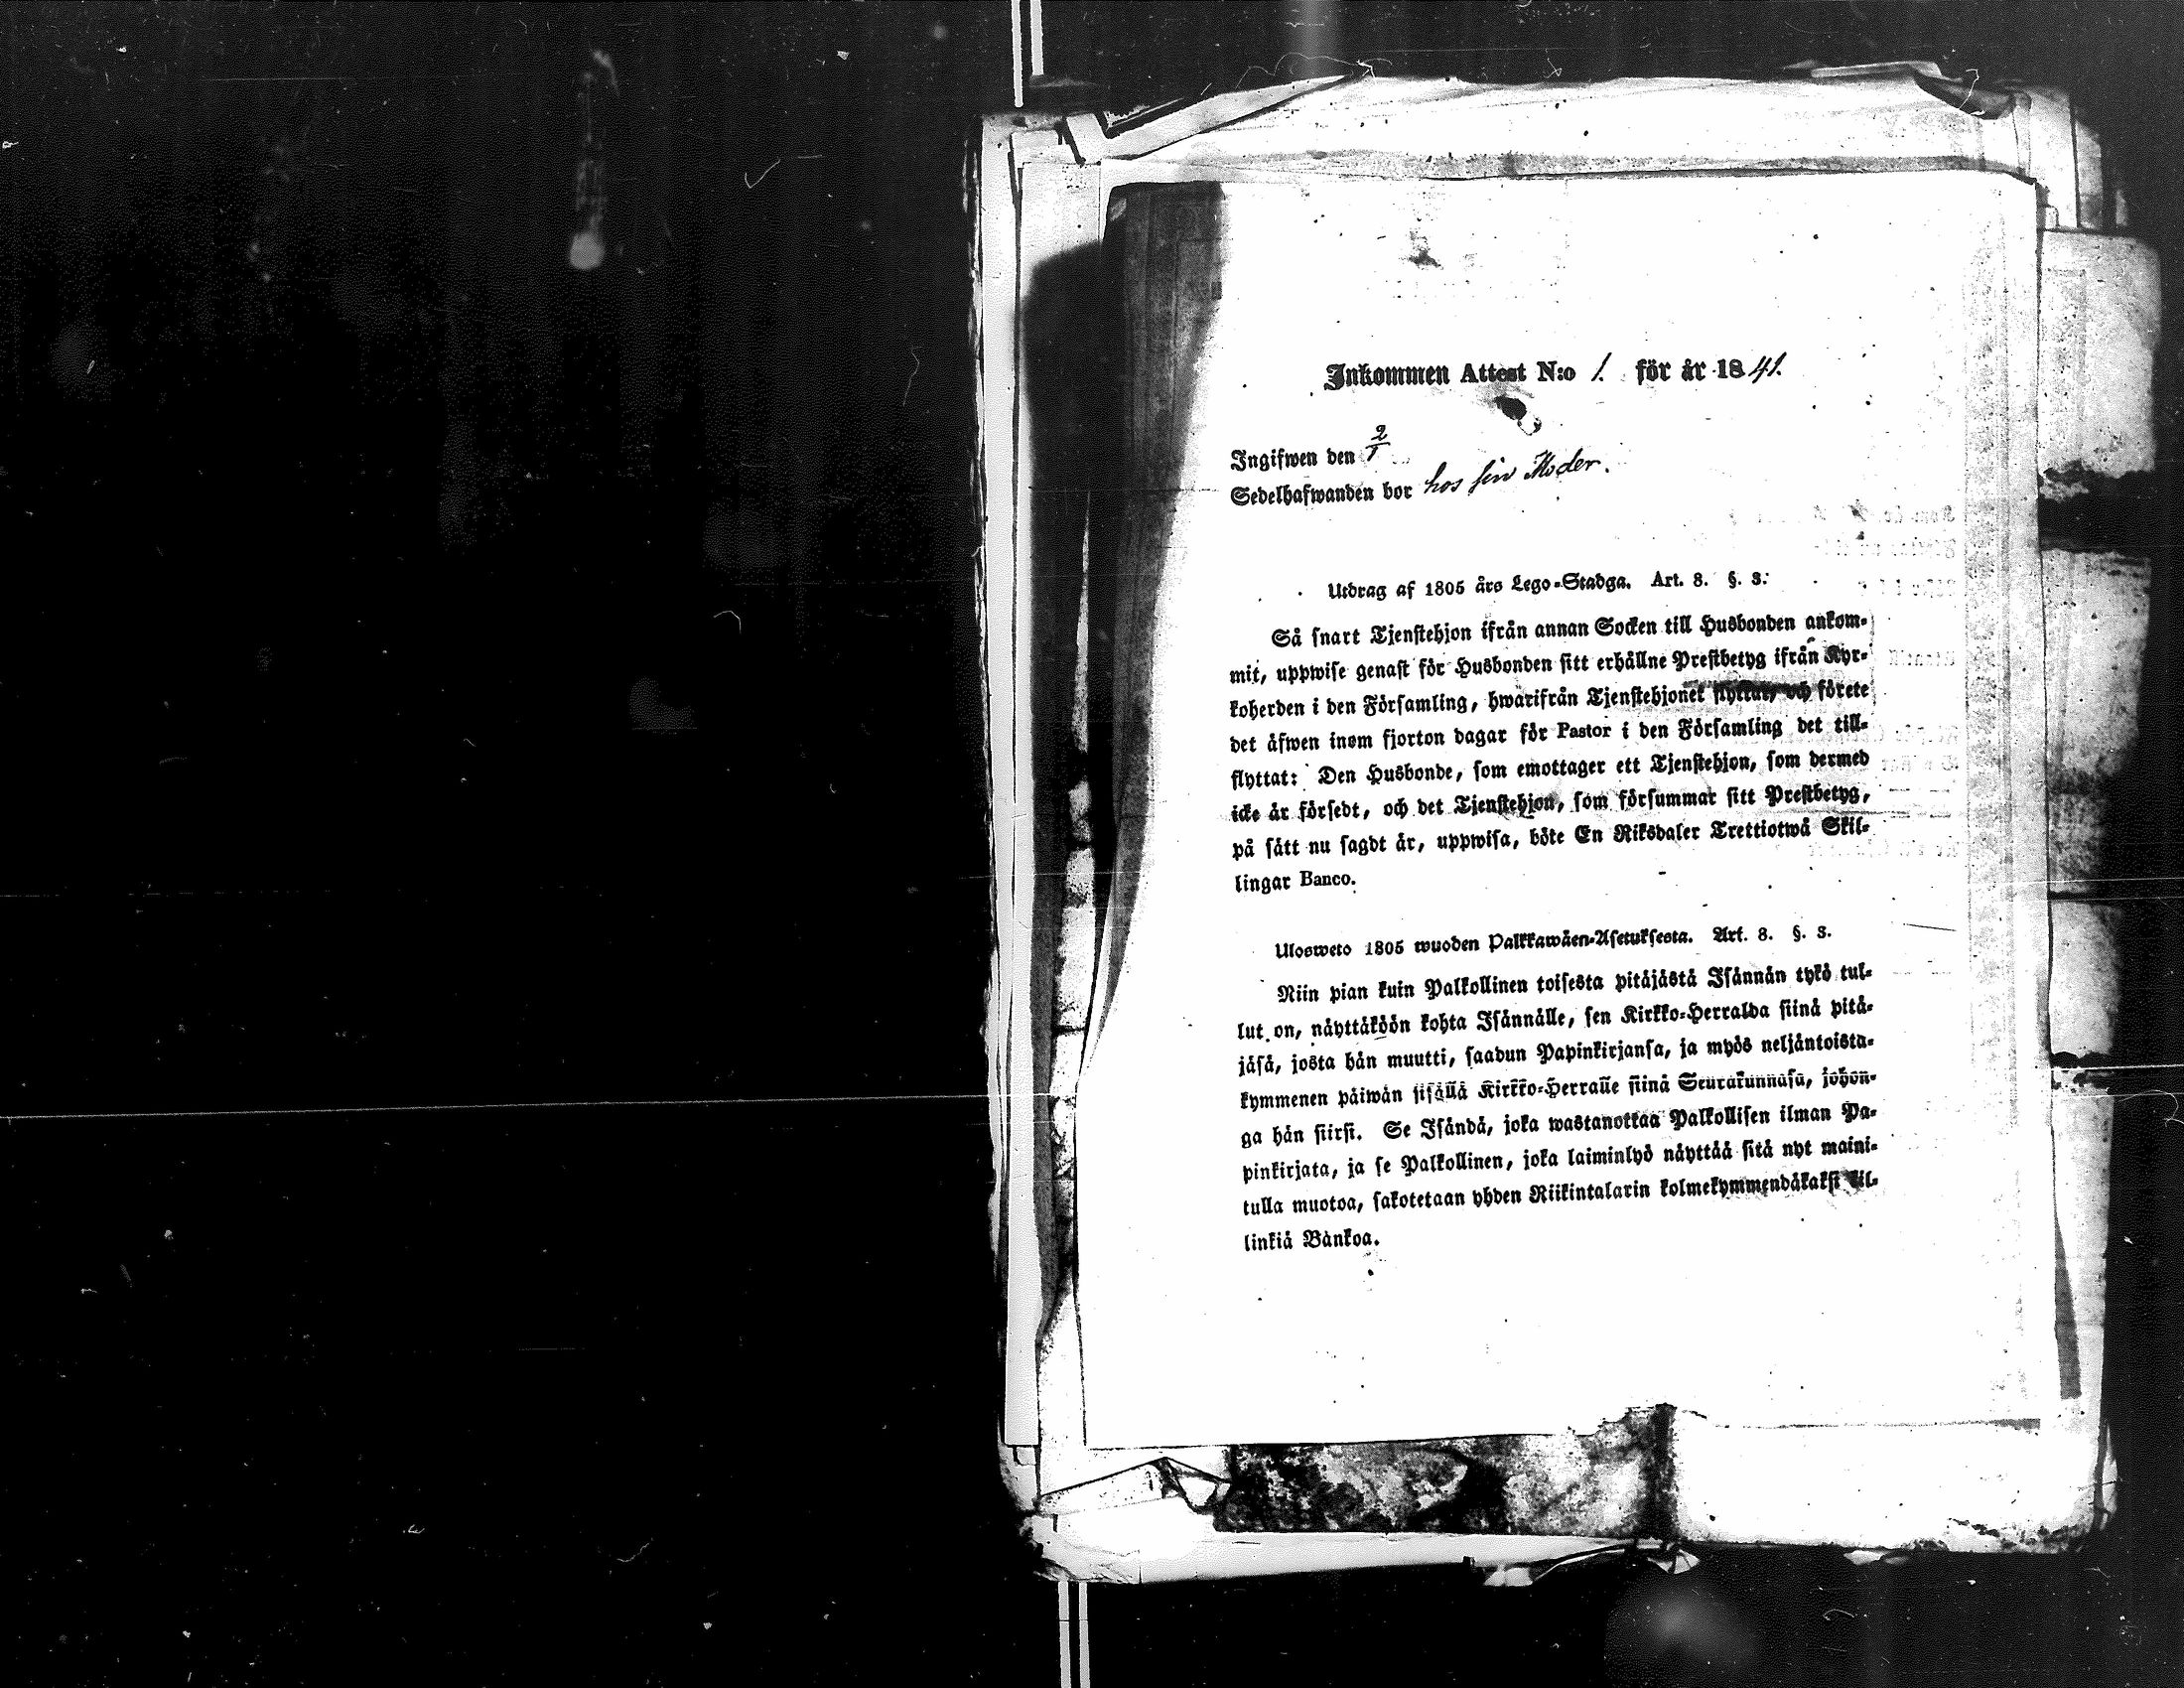 Inkommen Attest N:o 1. för år 1841.
Ingifwen den 2/1
Sedelhafwanden bor hos sin Moder.
Utdrag af 1805 års Lego-Stadga. Art. 8. §. 3.
Så snart Tjenstehjon ifrån annan Socken till Husbonden ankom-
mit, uppwise genast för Husbonden sitt erhållne Prestbetyg ifrån Kyr-
koherden i den Församling, hwarifrån Tjenstehjonet flyttat, och förete
det äfwen inom fjorton dagar för Pastor i den Församling det till-
flyttat: Den Husbonde, som emottager ett Tjenstehjon, som dermed
icke är försedt, och det Tjenstehjon, som försummar sitt Prestbetyg,
på sätt nu sagdt är, uppwisa, böte En Riksdaler Trettiotwå Skil-
lingar Banco.
Ulosweto 1805 wuoden Palkkawäen-Asetuksesta. Art. 8. §. 3.
Niin pian kuin Palkollinen toisesta pitäjästä Isännän tykö tul-
lut on, näyttäköön kohta Isännälle, sen Kirkko-Herralda siinä pitä-
jäsä, josta hän muutti, saadun Papinkirjansa, ja myös neljäntoista-
kymmenen päiwän sisällä Kirkko-Herralle siinä Seurakunnasa, johon-
ga hän siirsi. Se Isändä, joka wastanottaa Palkollisen ilman Pa-
pinkirjata, ja se Palkollinen, joka laiminlyö näyttää sitä nyt maini-
tulla muotoa, sakotetaan yhden Riikintalarin kolmekymmendäkaksi kil-
linkiä Bankoa.